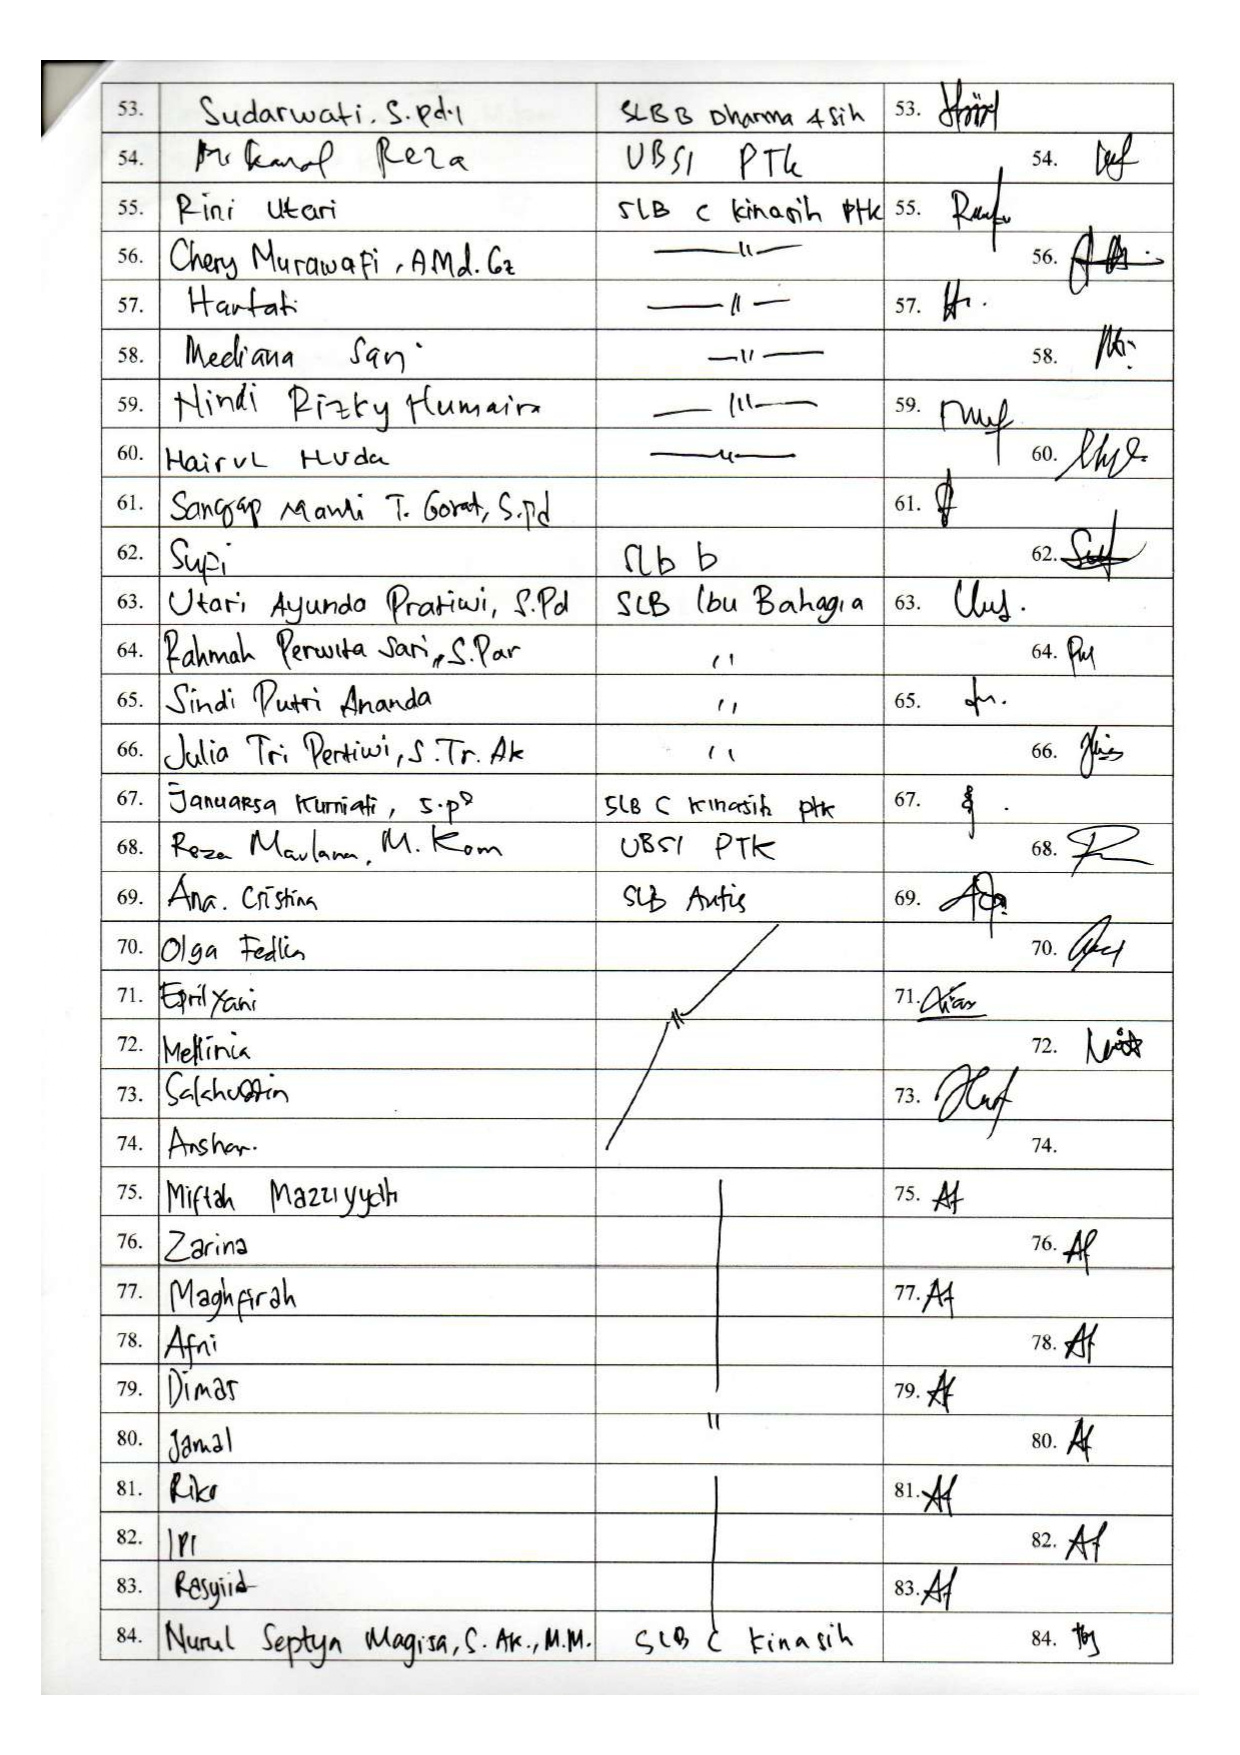 53. Sudarwati. S.pd.I SLB B Dharma Asih 53.
54. Reza UBSI PTK 54.
55. Rini Utari SLB C Kinasih PTK 55.
56. Chery Murawafi, AMd. Gz 〃 56.
57. Hartati 〃 57.
58. Mediana Sari 〃 58.
59. Nindi Rizky Humaira 〃 59.
60. Hairul Huda 〃 60.
61. Sanggap Manli T. Gorat, S.Pd 61.
62. Supi SLB b 62.
63. Utari Ayunda Pratiwi, S.Pd SLB Ibu Bahagia 63.
64. Rahmah Perwita Sari, S.Par 〃 64.
65. Sindi Putri Ananda 〃 65.
66. Julia Tri Pertiwi, S.Tr.Ak 〃 66.
67. Januarsa Kurniati, S.pd SLB C Kinasih ptk 67.
68. Reza Maulana, M.Kom UBSI PTK 68.
69. Ana. Cristina SLB Autis 69.
70. Olga Fedlin 70.
71. Epril Yani 〃 71.
72. Melfinia 72.
73. Salahuddin 73.
74. Anshar. 74.
75. Miftah Mazziyyah 75. Af
76. Zarina 76. Af
77. Maghfirah 77. Af
78. Afni 78. Af
79. Dimas 79. Af
80. Jamal 〃 80. Af
81. Riko 81. Af
82. IPI 82. Af
83. Rasyiid 83. Af
84. Nurul Septyn Magisa, S.Ak., M.M. SLB C Kinasih 84.